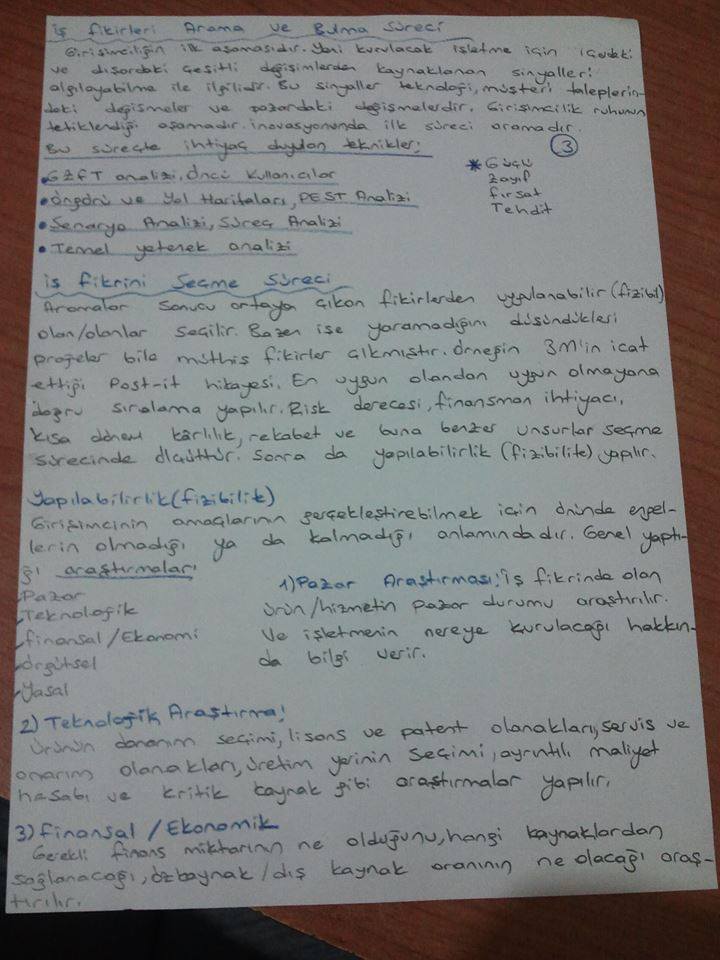 iş fikirleri Arama ve Bulma Süreci
Girişimciliğin ilk aşamasıdır. Yeni kurulacak işletme için içerdeki
ve dışardaki çeşitli değişimlerden kaynaklanan sinyalleri
algılayabilme ile ilgilidir. Bu sinyaller teknoloji, müşteri taleplerin-
deki değişmeler ve pazardaki değişmelerdir. Girişimcilik ruhunun
tetiklendiği aşamadır. inovasyonunda ilk süreci aramadır.
Bu süreçte ihtiyaç duyulan teknikler;
③
• GZFT analizi, Öncü kullanıcılar
• Öngörü ve Yol Haritaları, PEST Analizi
• Senaryo Analizi, Süreç Analizi
• Temel yetenek analizi
* Güçlü
Zayıf
fırsat
Tehdit
iş fikrini Seçme Süreci
Aramalar sonucu ortaya çıkan fikirlerden uygulanabilir (fizibil)
olan/olanlar seçilir. Bazen işe yaramadığını düşündükleri
projeler bile müthiş fikirler çıkmıştır. Örneğin 3M'in icat
ettiği Post-it hikayesi. En uygun olandan uygun olmayana
doğru sıralama yapılır. Risk derecesi, finansman ihtiyacı,
kısa dönem kârlılık, rekabet ve buna benzer unsurlar seçme
sürecinde ölçüttür. Sonra da yapılabilirlik (fizibilite) yapılır.
Yapılabilirlik (fizibilite)
Girişimcinin amaçlarının gerçekleştirebilmek için önünde engel-
lerin olmadığı ya da kalmadığı anlamındadır. Genel yaptı-
ğı araştırmaları
✓Pazar
✓Teknolojik
✓finansal / Ekonomi
✓örgütsel
✓Yasal
1) Pazar Araştırması: iş fikrinde olan
ürün/hizmetin pazar durumu araştırılır.
Ve işletmenin nereye kurulacağı hakkın-
da bilgi verir.
2) Teknolojik Araştırma;
Ürünün donanım seçimi, lisans ve patent olanakları, servis ve
onarım olanakları, üretim yerinin seçimi, ayrıntılı maliyet
hesabı ve kritik kaynak gibi araştırmalar yapılır.
3) finansal / Ekonomik
Gerekli finans miktarının ne olduğunu, hangi kaynaklardan
sağlanacağı, özkaynak / dış kaynak oranının ne olacağı araş-
tırılır.